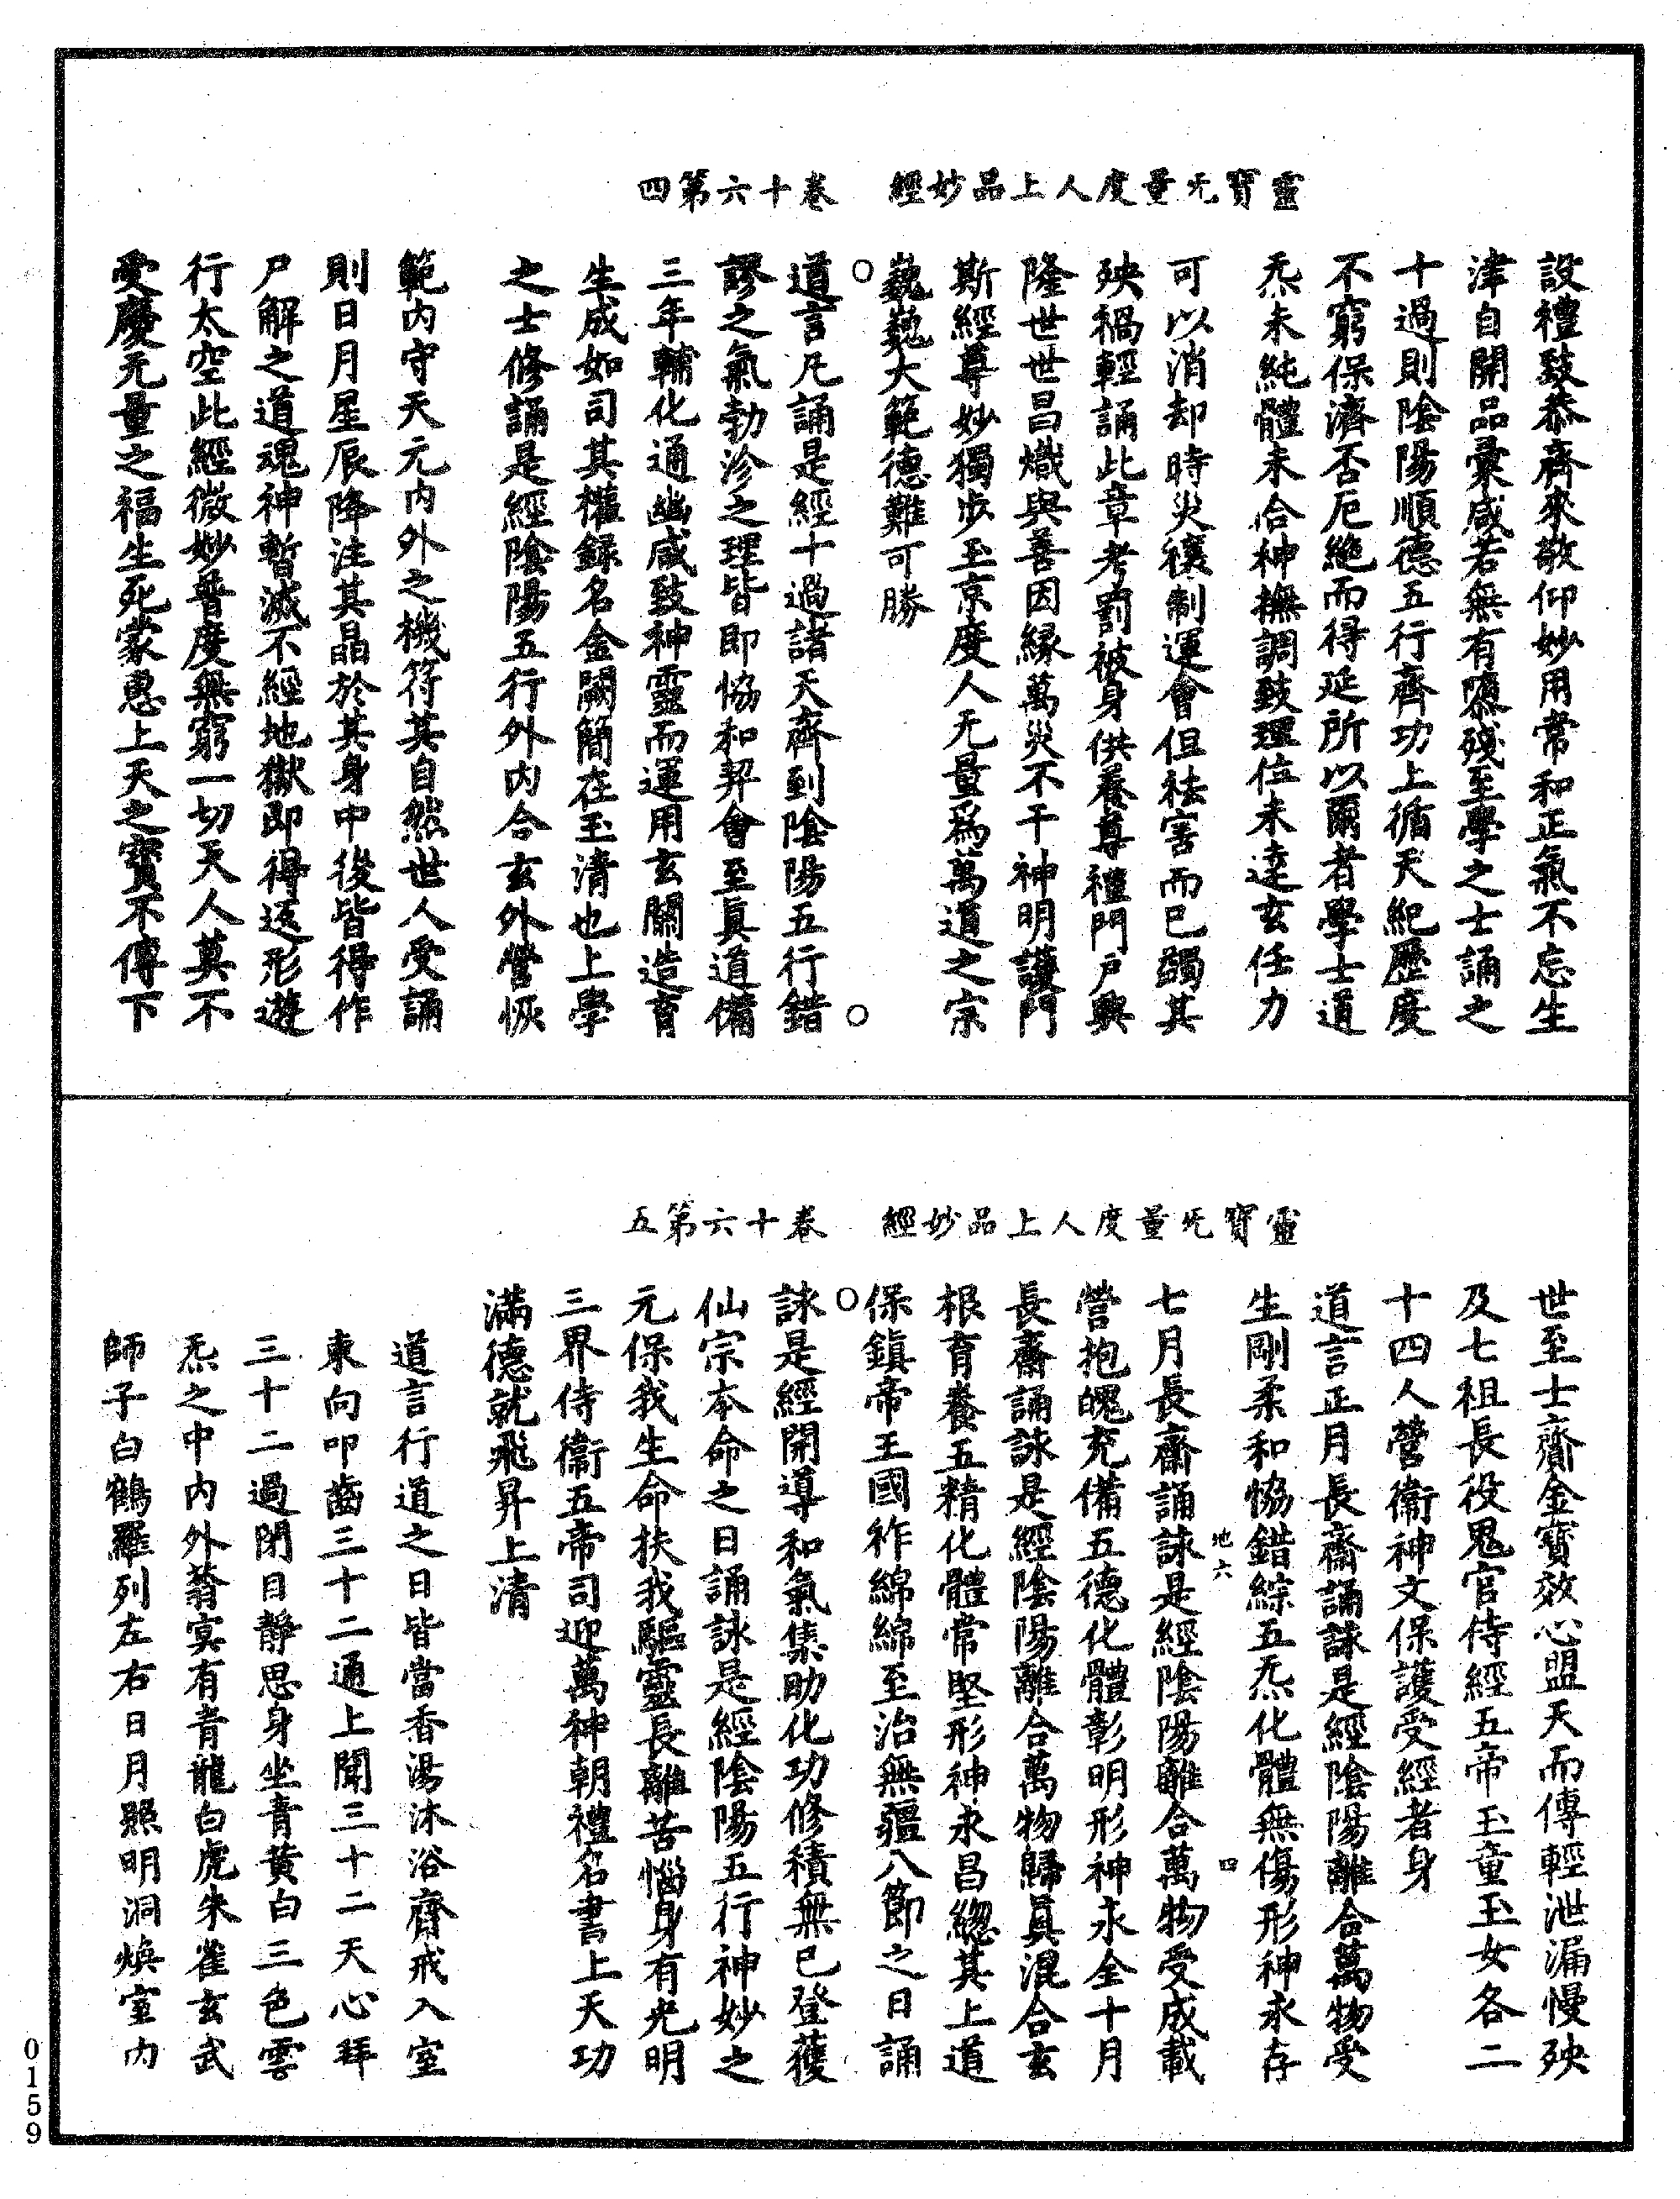 靈寶无量度人上品妙經　卷十六第四
設禮致恭齊來敬仰妙用常和正氣不忘生
津自開品彙咸若無有隱殘至學之士誦之
十過則陰陽順德五行齊功上循天紀歷度
不窮保濟否厄絶而得延所以爾者學士道
炁未純體未合神撫調致理位未逹玄任力
可以消却時災禳制運會但祛害而已蠲其
殃禍輕誦此章考罰被身供養尊禮門戶興
隆世世昌熾與善因緣萬災不干神明護門
斯經尊妙獨步玉京度人无量爲萬道之宗
巍巍大範德難可勝
○
道言凡誦是經十過諸天齊到陰陽五行錯
○
謬之氣勃沴之理皆即恊和契會至眞道備
三年輔化通幽咸致神靈而運用玄關造育
生成如司其權錄名金闕簡在玉清也上學
之士修誦是經陰陽五行外内合玄外營恢
範内守天元内外之機符其自然世人受誦
則日月星辰降注其晶於其身中後皆得作
尸解之道魂神暫滅不經地獄即得返形遊
行太空此經微妙普度無窮一切天人莫不
受慶无量之福生死蒙惠上天之寶不傳下
靈寶无量度人上品妙經　卷十六第五
世至士齎金寶效心盟天而傳輕泄漏慢殃
及七祖長役鬼官侍經五帝玉童玉女各二
十四人營衞神文保護受經者身
道言正月長齋誦詠是經陰陽離合萬物受
生剛柔和恊錯綜五炁化體無傷形神永存
地六　四
七月長齋誦詠是經陰陽離合萬物受成載
營抱魄充備五德化體彰明形神永全十月
長齋誦詠是經陰陽離合萬物歸眞混合玄
根育養五精化體常堅形神永昌緫其上道
保鎮帝王國祚綿綿至治無疆八節之日誦
○
詠是經開導和氣集助化功修積無已登獲
仙宗本命之日誦詠是經陰陽五行神妙之
元保我生命扶我驅靈長離苦惱身有光明
三界侍衞五帝司迎萬神朝禮名書上天功
滿德就飛昇上清
道言行道之日皆當香湯沐浴齋戒入室
東向叩齒三十二通上聞三十二天心拜
三十二過閉目靜思身坐青黃白三色雲
炁之中内外蓊冥有青龍白虎朱雀玄武
師子白鶴羅列左右日月照明洞煥室内
0159